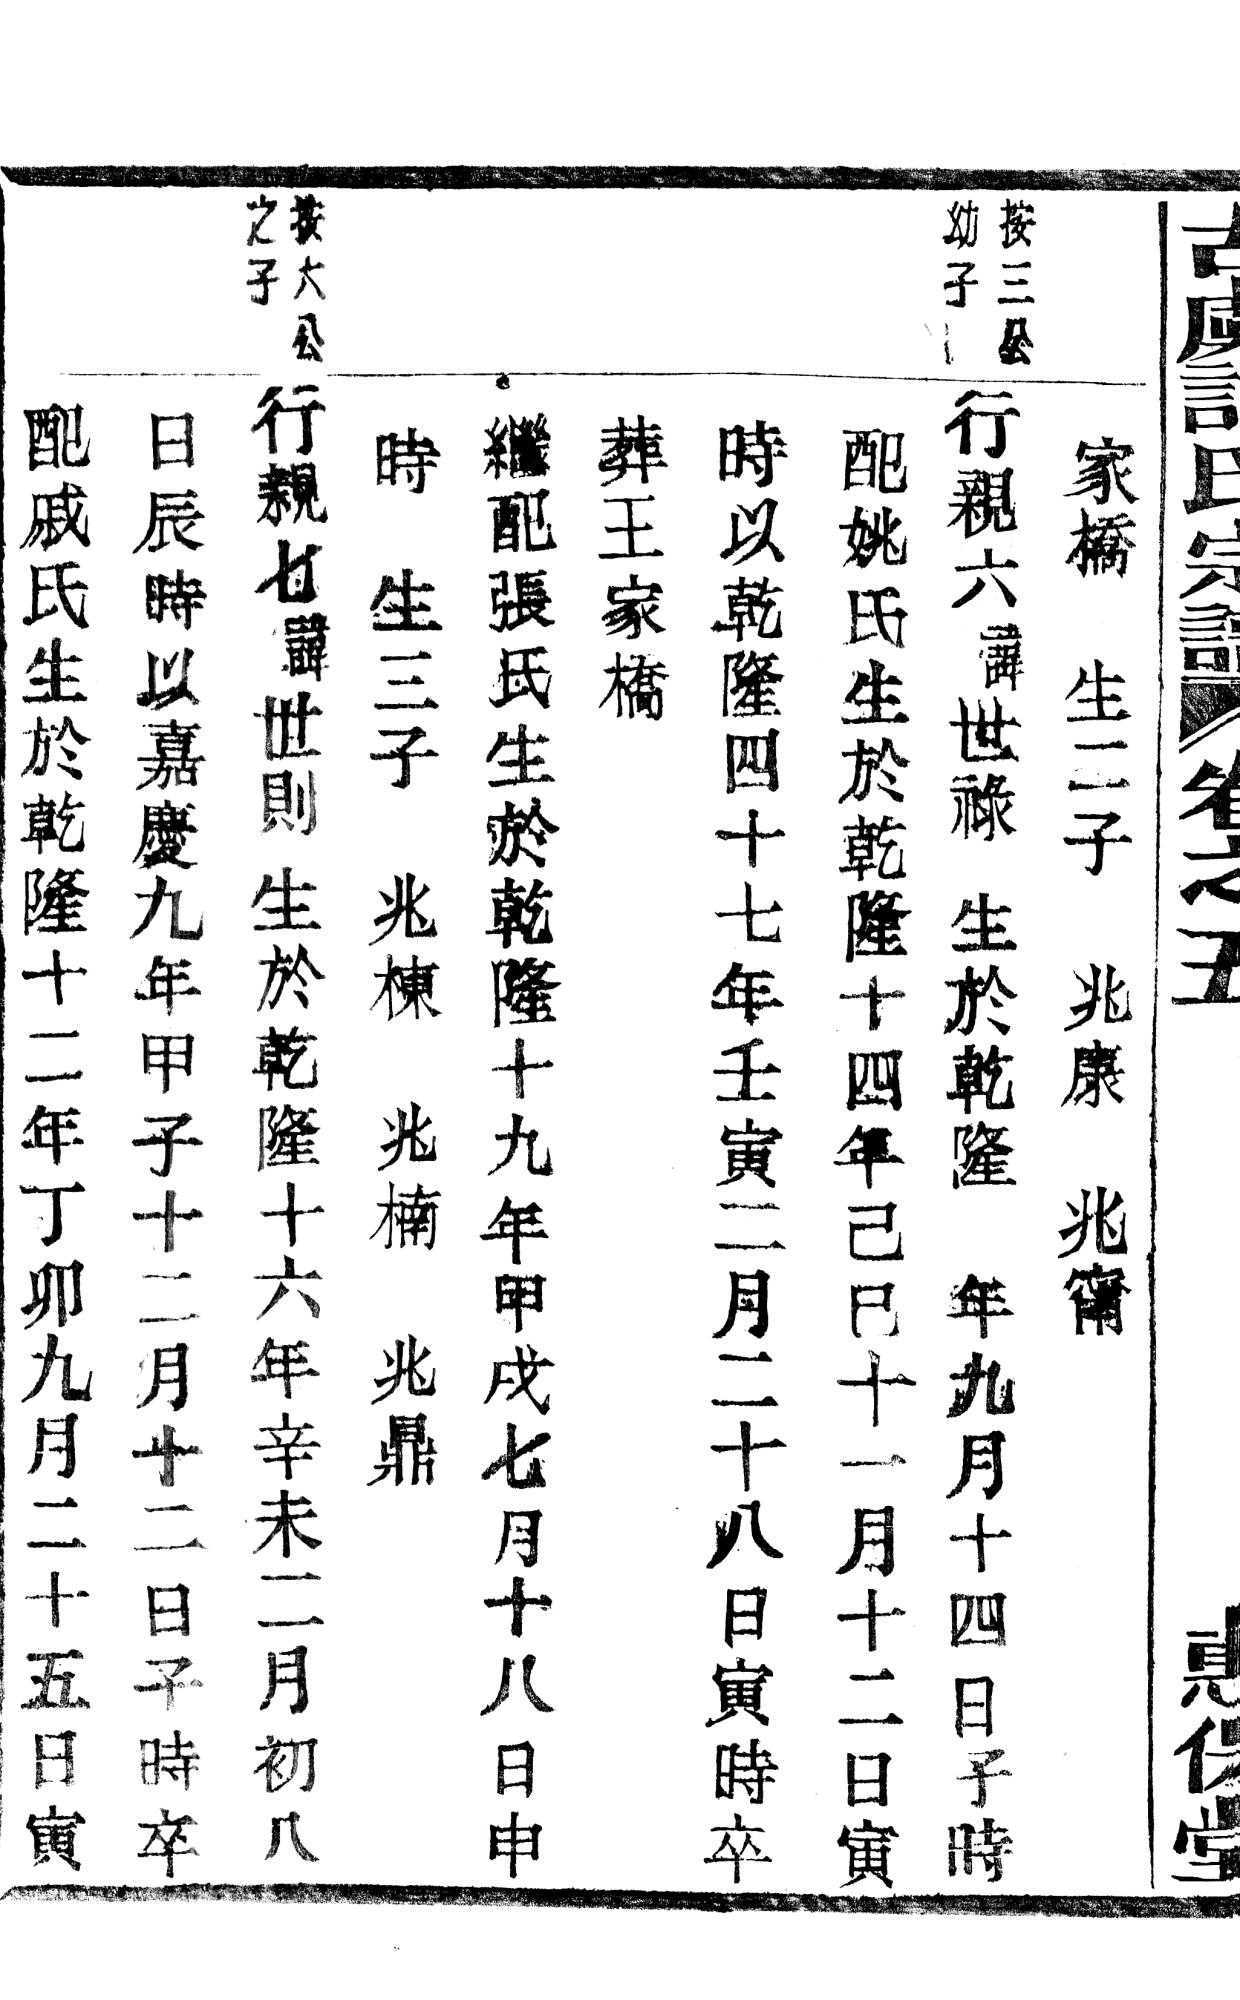 古虞許氏宗譜 卷之五 惠保堂
家橋 生二子 兆康 兆甯
按三公
幼子
行親六諱世祿 生於乾隆 年九月十四日子時
配姚氏生於乾隆十四年己巳十一月十二日寅
時以乾隆四十七年壬寅二月二十八日寅時卒
葬王家橋
繼配張氏生於乾隆十九年甲戌七月十八日申
時 生三子 兆棟 兆楠 兆鼎
按大公
之子
行親七諱世則 生於乾隆十六年辛未二月初八
日辰時以嘉慶九年甲子十二月十二日子時卒
配戚氏生於乾隆十二年丁卯九月二十五日寅